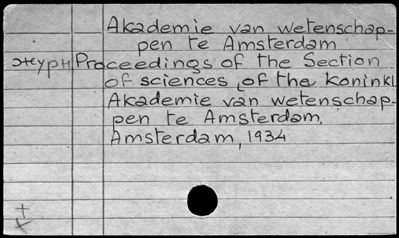 Akademie van wetenschap-
pen te Amsterdam.
журн Proceedings of the Section
of sciences of the koninkl.
Akademie van wetenschap-
pen te Amsterdam.
Amsterdam, 1934